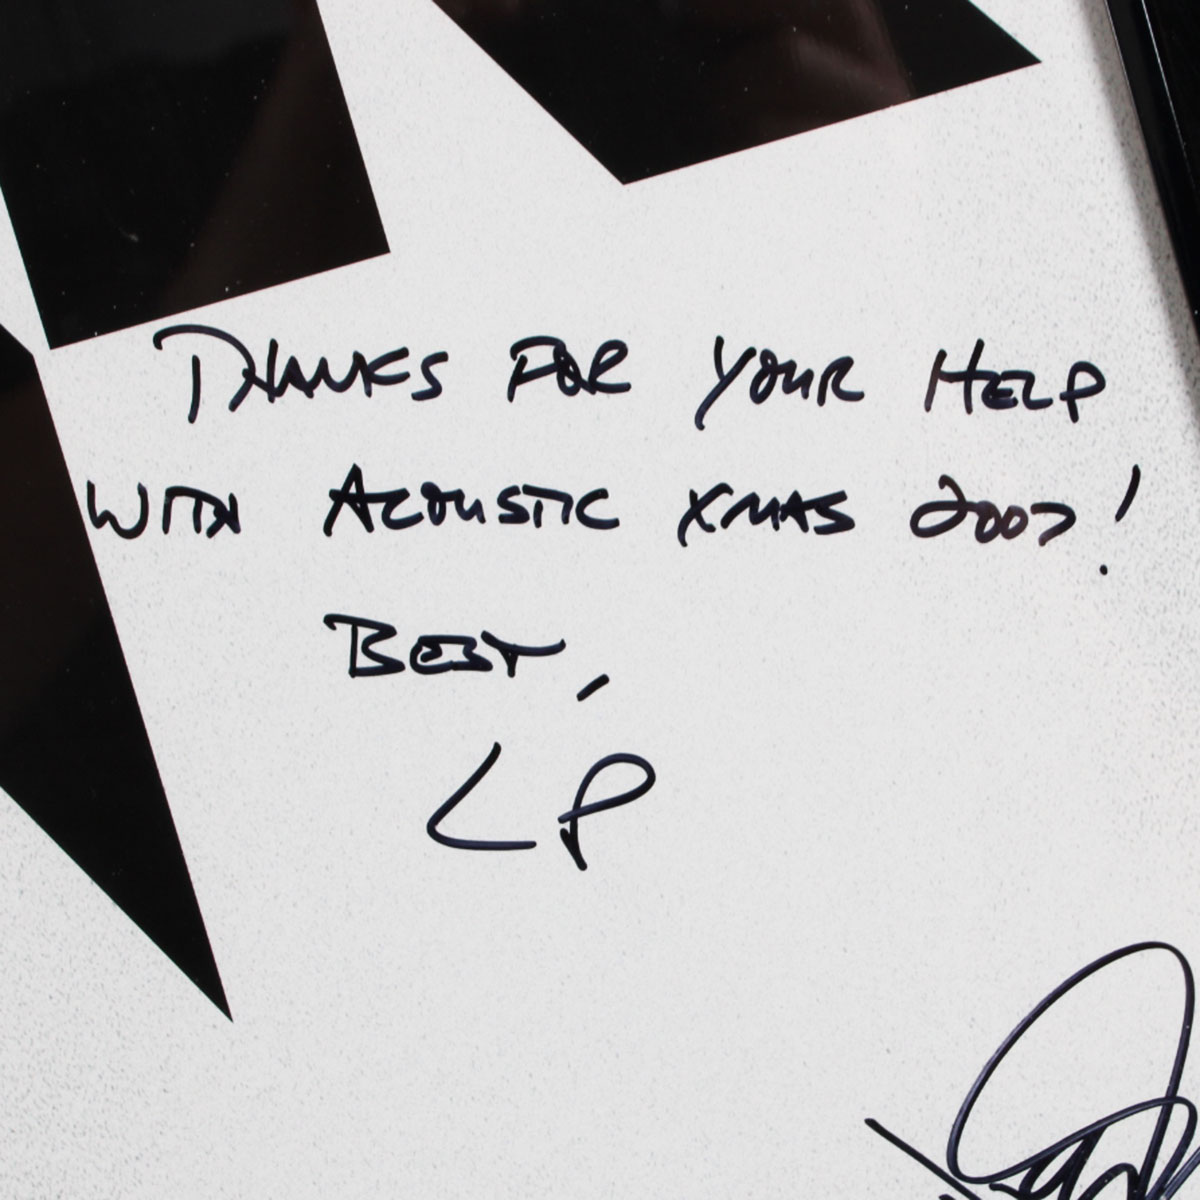 THANKS FOR YOUR HELP
WITH ACOUSTIC XMAS 2007!
BEST,
LP